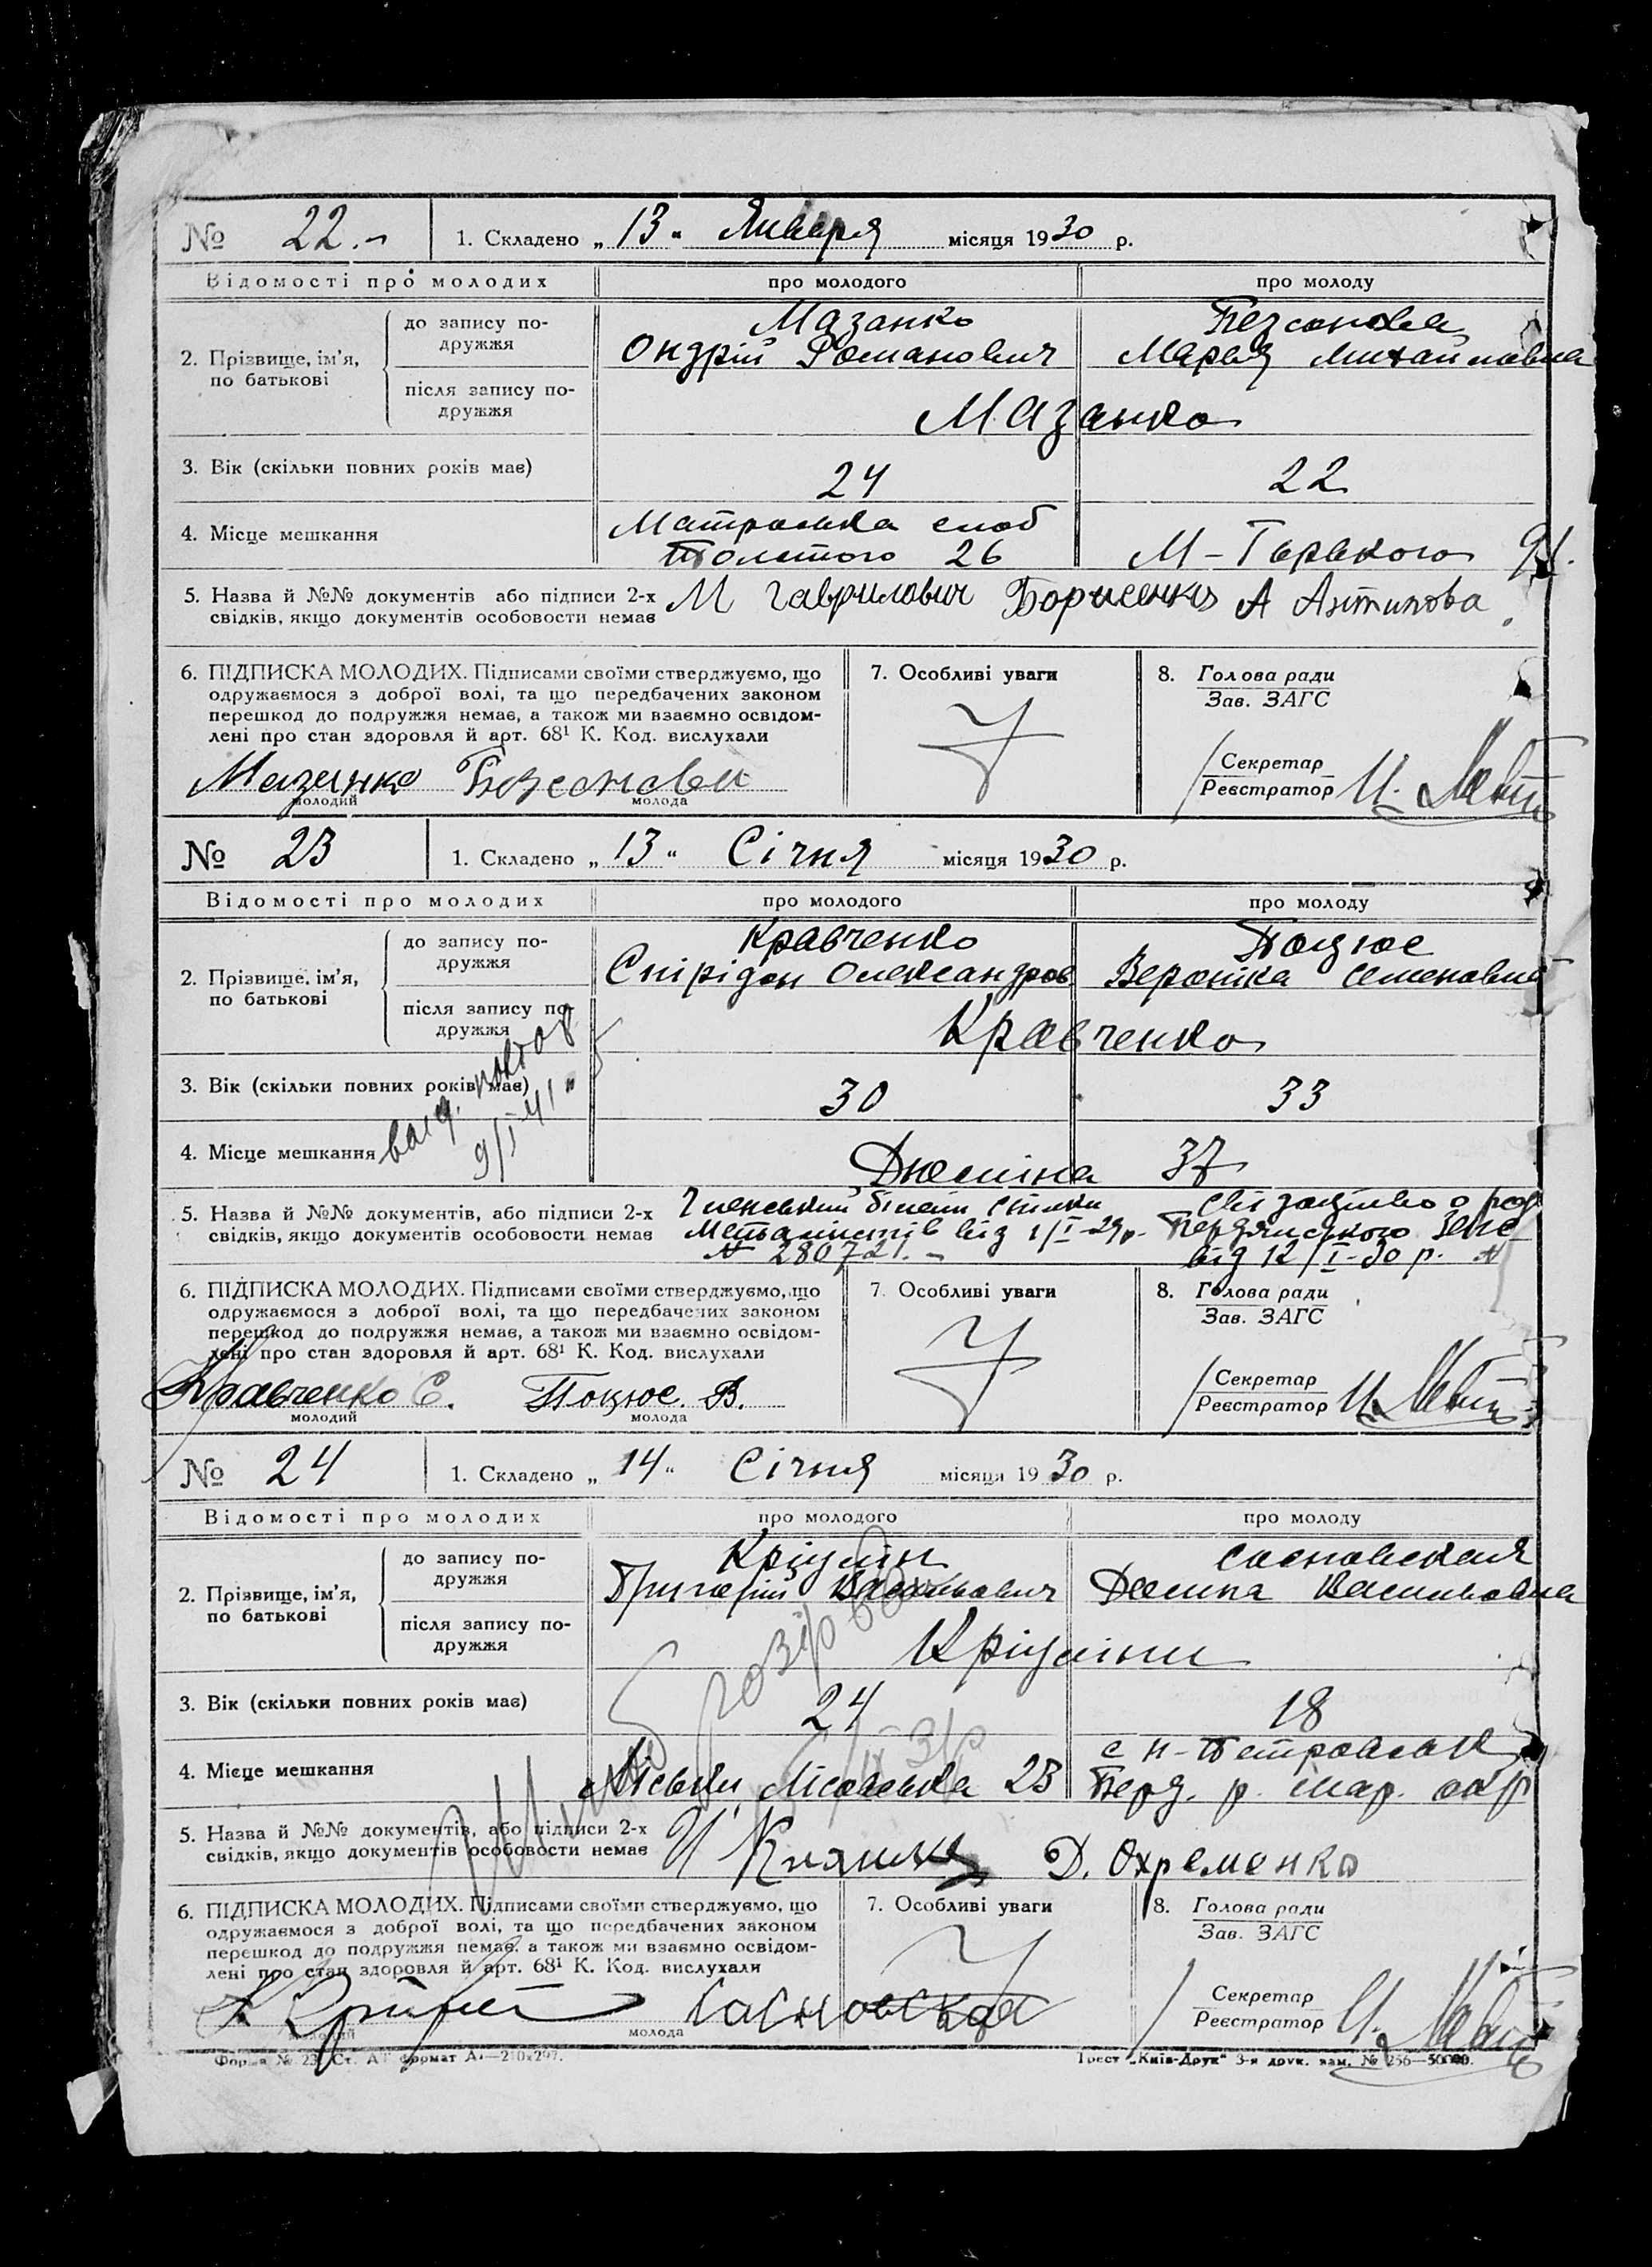 № 22. 1. Складено „13“ Января місяця 1930 р.
Відомості про молодих про молодого про молоду
2. Прізвище, ім’я, по батькові
до запису по-
дружжя
Мазанко
Ондрій Романович
Безсонова
Мария Михайловна
після запису по-
дружжя
Мазанко
3. Вік (скільки повних років має) 24 22
4. Місце мешкання
Матроська слоб
Толстого 26
М-Горького
5. Назва й №№ документів або підписи 2-х
свідків, якщо документів особовости немає
М Гаврилович Борисенко А Антипова
6. ПІДПИСКА МОЛОДИХ. Підписами своїми стверджуємо, що
одружаємося з доброї волі, та що передбачених законом
перешкод до подружжя немає, а також ми взаємно освідом-
лені про стан здоровля й арт. 68¹ К. Код. вислухали
Мазанко Безсонова
молодий молода
7. Особливі уваги
8. Голова ради
Зав. ЗАГС
Секретар
Реєстратор
№ 23 1. Складено „13“ Січня місяця 1930 р.
Відомості про молодих про молодого про молоду
2. Прізвище, ім’я,
по батькові
до запису по-
дружжя
Кравченко
Спірідон Олександров
Поцюс
Вероніка Семеновна
після запису по-
дружжя
Кравченко
3. Вік (скільки повних років має) 30 33
4. Місце мешкання
Дюміна 37
5. Назва й №№ документів, або підписи 2-х
свідків, якщо документів особовости немає
Членський білет спілки
Металістів від 1/I-29р.
№ 280721.
від 12/I-30 р. №
6. ПІДПИСКА МОЛОДИХ. Підписами своїми стверджуємо, що
одружаємося з доброї волі, та що передбачених законом
перешкод до подружжя немає, а також ми взаємно освідом-
лені про стан здоровля й арт. 68¹ К. Код. вислухали
Кравченко С. Поцюс. В.
молодий молода
7. Особливі уваги
8. Голова ради
Зав. ЗАГС
Секретар
Реєстратор
№ 24 1. Складено „14“ Січня місяця 1930 р.
Відомості про молодих про молодого про молоду
2. Прізвище, ім’я,
по батькові
до запису по-
дружжя
Кріулін
Григорій Васильович
Сосновская
Васильовна
після запису по-
дружжя
Кріуліни
3. Вік (скільки повних років має) 24 18
4. Місце мешкання
Лісоковська 23
с Н-Петровськ
Берд. р. Мар. окр
5. Назва й №№ документів, або підписи 2-х
свідків, якщо документів особовости немає
Д. Охременко
6. ПІДПИСКА МОЛОДИХ. Підписами своїми стверджуємо, що
одружаємося з доброї волі, та що передбачених законом
перешкод до подружжя немає, а також ми взаємно освідом-
лені про стан здоровля й арт. 68¹ К. Код. вислухали
Сасновская
молодий молода
7. Особливі уваги
8. Голова ради
Зав. ЗАГС
Секретар
Реєстратор
Трест „Київ-Друк“ 3-я друк. зам. № 256—50000.